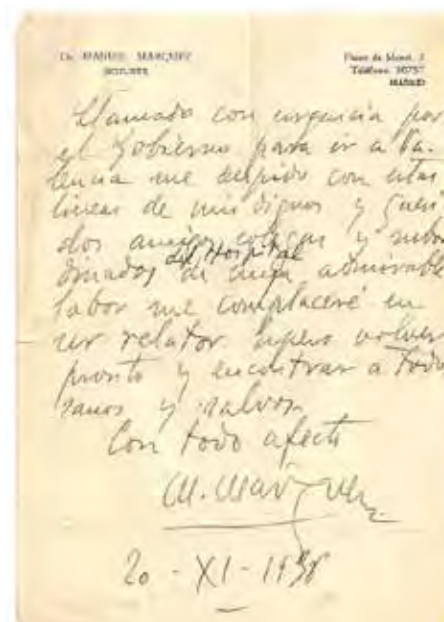 Dr. MANUEL MARQUEZ
Paseo de
Teléfono
MADRID
Llamado con urgencia por
el Gobierno para ir a Va-
lencia me despido con estas
lineas de mis dignos y queri
dos amigos colegas y subor
dinados del Hospital de cuya admirable
labor me complaceré en
ser relator. Espero volver
pronto y encontrar a todos
sanos y salvos.
Con todo afecto
M. Márquez
20 - XI - 1936